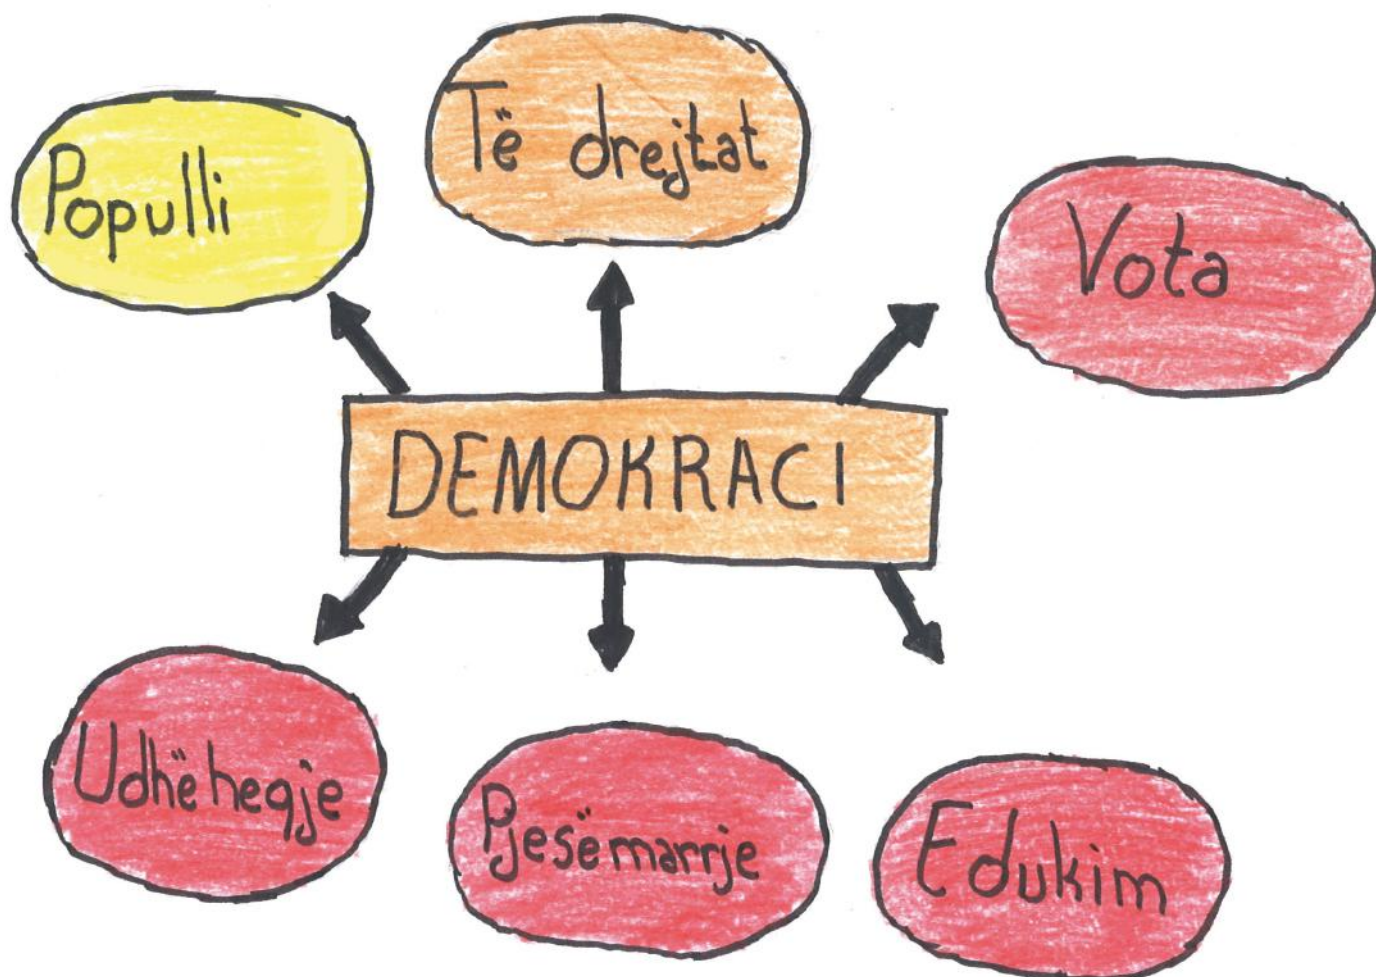 Populli
Të drejtat
Vota
DEMOKRACI
Udhëheqje
Pjesëmarrje
Edukim